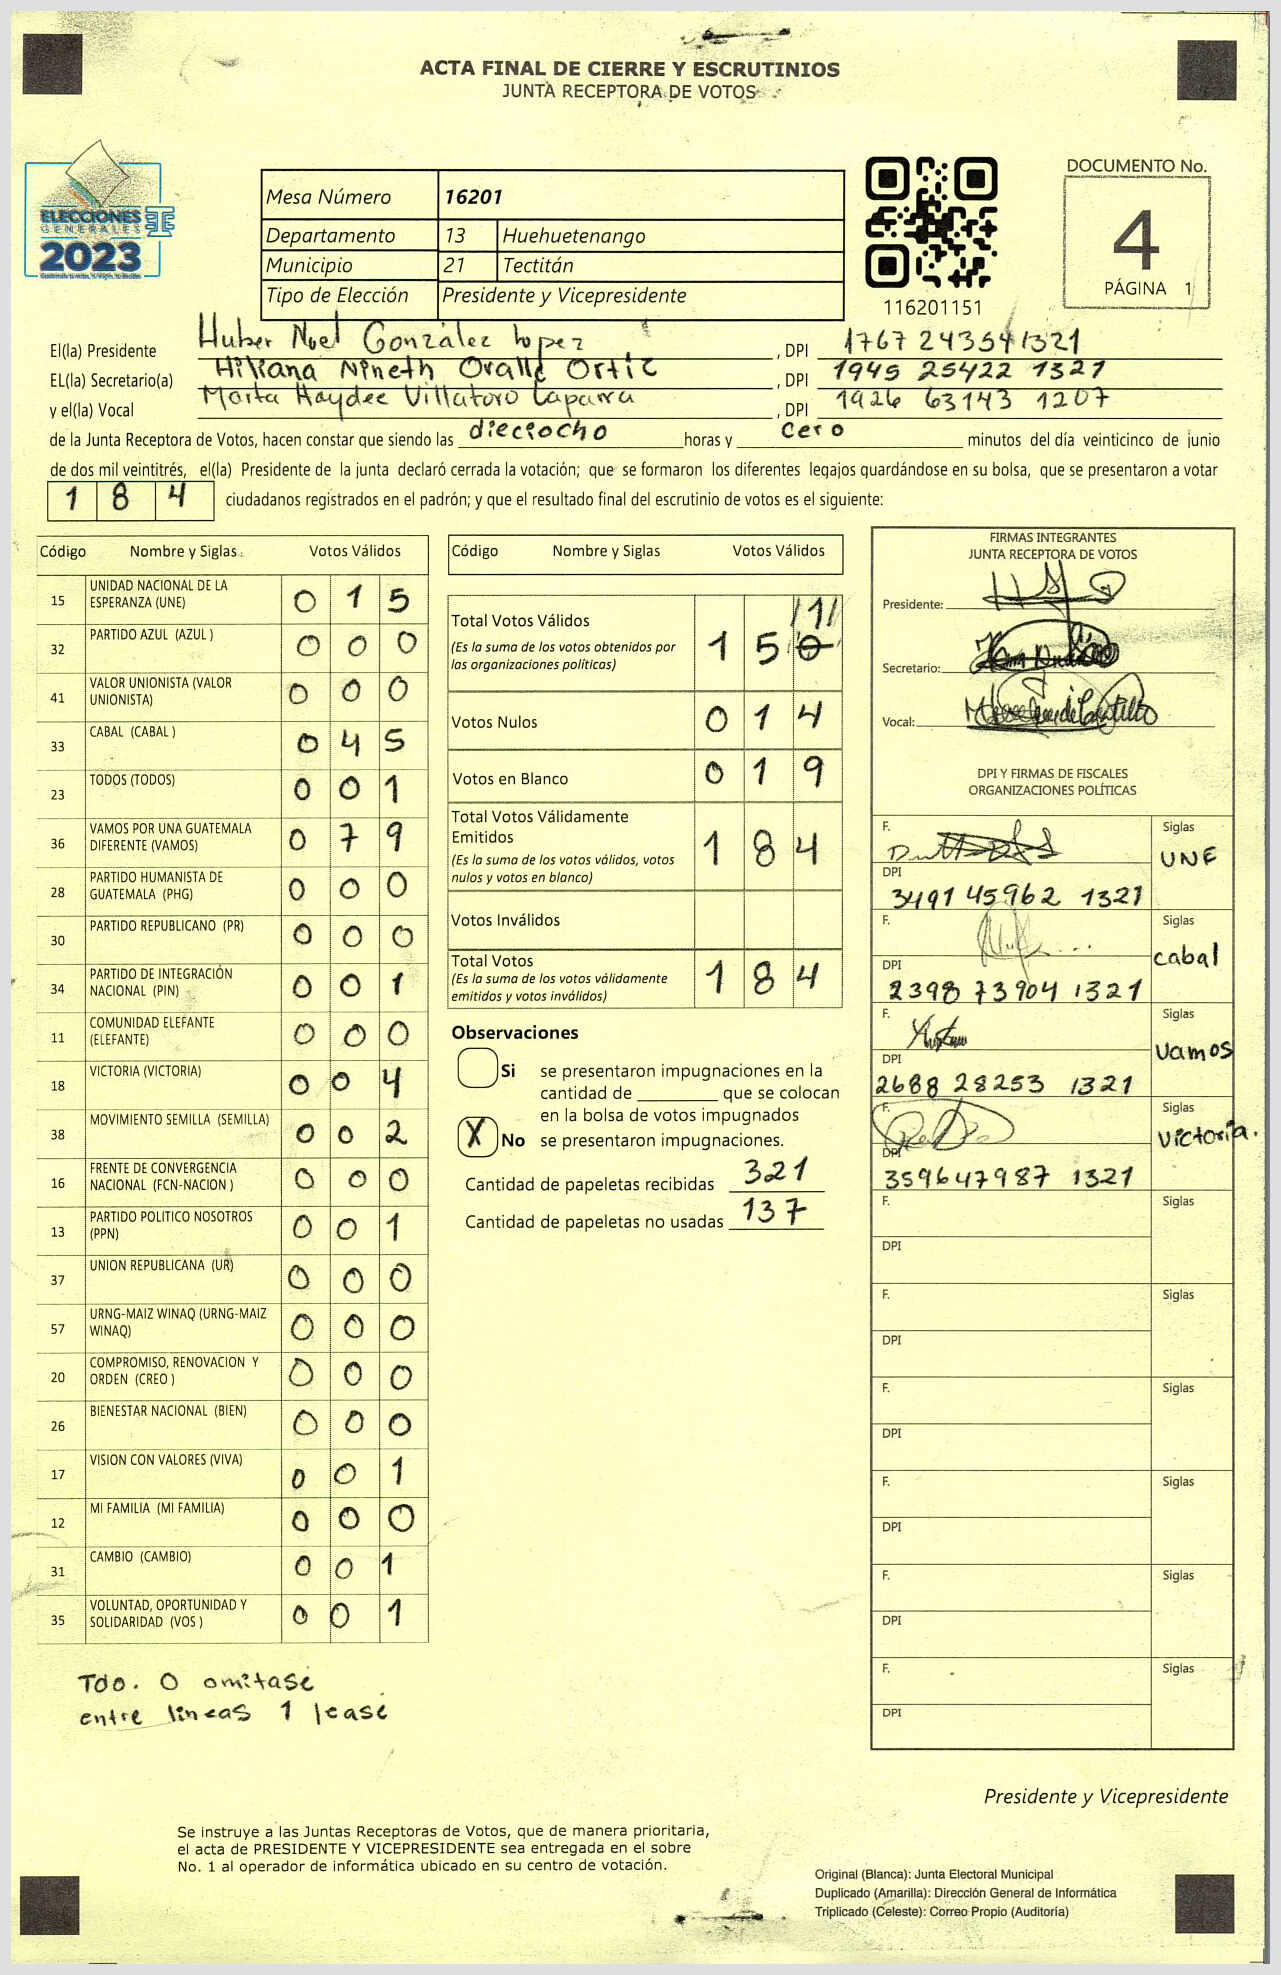 ACTA FINAL DE CIERRE Y ESCRUTINIOS
JUNTA RECEPTORA DE VOTOS
ELECCIONES
GENERALES
2023
Mesa Número 16201
Departamento 13 Huehuetenango
Municipio 21 Tectitán
Tipo de Elección Presidente y Vicepresidente
116201151
DOCUMENTO No.
4
PÁGINA 1
El(la) Presidente Huber Noel González Lopez, DPI 1767 24354 1321
EL(la) Secretario(a) Hiliana Nineth Ovalle Ortiz, DPI 1945 25422 1321
y el(la) Vocal Marta Haydee Villatoro Caparra, DPI 1926 63143 1207
de la Junta Receptora de Votos, hacen constar que siendo las dieciocho horas y cero minutos del día veinticinco de junio
de dos mil veintitrés, el(la) Presidente de la junta declaró cerrada la votación; que se formaron los diferentes legajos quardándose en su bolsa, que se presentaron a votar
184 ciudadanos registrados en el padrón; y que el resultado final del escrutinio de votos es el siguiente:
Código Nombre y Siglas Votos Válidos
15 UNIDAD NACIONAL DE LA ESPERANZA (UNE) 0 1 5
32 PARTIDO AZUL (AZUL ) 0 0 0
41 VALOR UNIONISTA (VALOR UNIONISTA) 0 0 0
33 CABAL (CABAL ) 0 4 5
23 TODOS (TODOS) 0 0 1
36 VAMOS POR UNA GUATEMALA DIFERENTE (VAMOS) 0 7 9
28 PARTIDO HUMANISTA DE GUATEMALA (PHG) 0 0 0
30 PARTIDO REPUBLICANO (PR) 0 0 0
34 PARTIDO DE INTEGRACIÓN NACIONAL (PIN) 0 0 1
11 COMUNIDAD ELEFANTE (ELEFANTE) 0 0 0
18 VICTORIA (VICTORIA) 0 0 4
38 MOVIMIENTO SEMILLA (SEMILLA) 0 0 2
16 FRENTE DE CONVERGENCIA NACIONAL (FCN-NACION ) 0 0 0
13 PARTIDO POLITICO NOSOTROS (PPN) 0 0 1
37 UNION REPUBLICANA (UR) 0 0 0
57 URNG-MAIZ WINAQ (URNG-MAIZ WINAQ) 0 0 0
20 COMPROMISO, RENOVACION Y ORDEN (CREO ) 0 0 0
26 BIENESTAR NACIONAL (BIEN) 0 0 0
17 VISION CON VALORES (VIVA) 0 0 1
12 MI FAMILIA (MI FAMILIA) 0 0 0
31 CAMBIO (CAMBIO) 0 0 1
35 VOLUNTAD, OPORTUNIDAD Y SOLIDARIDAD (VOS ) 0 0 1
Tdo. 0 omitase
entre lineas 1 lease
Código Nombre y Siglas Votos Válidos
/1/
Total Votos Válidos 1 5 /0/
(Es la suma de los votos obtenidos por las organizaciones políticas)
Votos Nulos 0 1 4
Votos en Blanco 0 1 9
Total Votos Válidamente Emitidos 1 8 4
(Es la suma de los votos válidos, votos nulos y votos en blanco)
Votos Inválidos
Total Votos 1 8 4
(Es la suma de los votos válidamente emitidos y votos inválidos)
Observaciones
Si se presentaron impugnaciones en la
cantidad de ________ que se colocan
en la bolsa de votos impugnados
X No se presentaron impugnaciones.
Cantidad de papeletas recibidas 321
Cantidad de papeletas no usadas 137
FIRMAS INTEGRANTES
JUNTA RECEPTORA DE VOTOS
Presidente:
Secretario:
Vocal:
DPI Y FIRMAS DE FISCALES
ORGANIZACIONES POLÍTICAS
F. Siglas UNE
DPI 3491 45962 1321
F. Siglas cabal
DPI 2398 73904 1321
F. Siglas Vamos
DPI 2688 28253 1321
F. Siglas Victoria.
DPI 3596 47987 1321
F. Siglas
DPI
F. Siglas
DPI
F. Siglas
DPI
F. Siglas
DPI
F. Siglas
DPI
F. Siglas
DPI
Presidente y Vicepresidente
Se instruye a las Juntas Receptoras de Votos, que de manera prioritaria,
el acta de PRESIDENTE Y VICEPRESIDENTE sea entregada en el sobre
No. 1 al operador de informática ubicado en su centro de votación.
Original (Blanca): Junta Electoral Municipal
Duplicado (Amarilla): Dirección General de Informática
Triplicado (Celeste): Correo Propio (Auditoría)